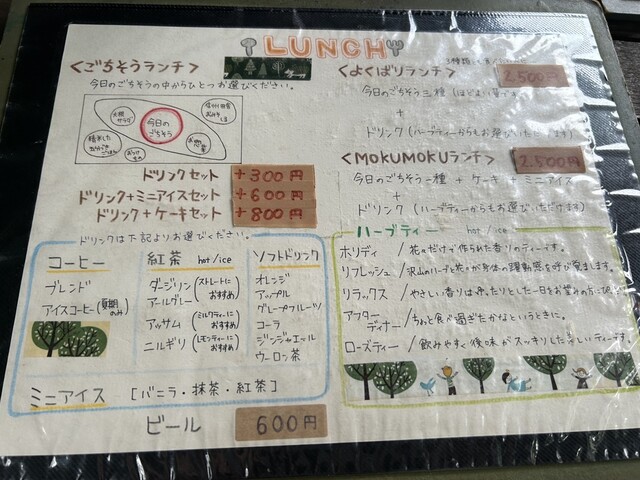 LUNCH
<ごちそうランチ>
今日のごちそうの中からひとつお選びください。
大根
サラダ
今日の
ごちそう
信州田舎
おみそ
しる
お椀
ドリンクセット +300円
ドリンク+ミニアイスセット +600円
ドリンク+ケーキセット +800円
ドリンクは下記よりお選びください。
コーヒー
ブレンド
アイスコーヒー(夏期のみ)
紅茶 hot/ice
ダージリン (ストレートにおすすめ)
アールグレー
アッサム (ミルクティーにおすすめ)
ニルギリ (レモンティーにおすすめ)
ソフトドリンク
オレンジ
アップル
グレープフルーツ
コーラ
ジンジャエール
ウーロン茶
ミニアイス [バニラ・抹茶・紅茶]
ビール 600円
<よくばりランチ> 2,500円
今日のごちそう三種
+
ドリンク(ハーブティーからもお選びいただけます)
<MOKUMOKUランチ> 2,500円
今日のごちそう一種 + ケーキ + ミニアイス
+
ドリンク(ハーブティーからもお選びいただけます)
ハーブティー hot/ice
ホリデイ / 花々だけで作られた香りのティーです。
リフレッシュ / 沢山のハーブと花々が身体の躍動感を呼び覚まします。
リラックス / やさしい香りは、ゆったりとした一日をお望みの方に
アフター
ディナー / ちょっと食べ過ぎたかなというときに。
ローズティー / 飲みやすく後味がスッキリした美しいティーです。